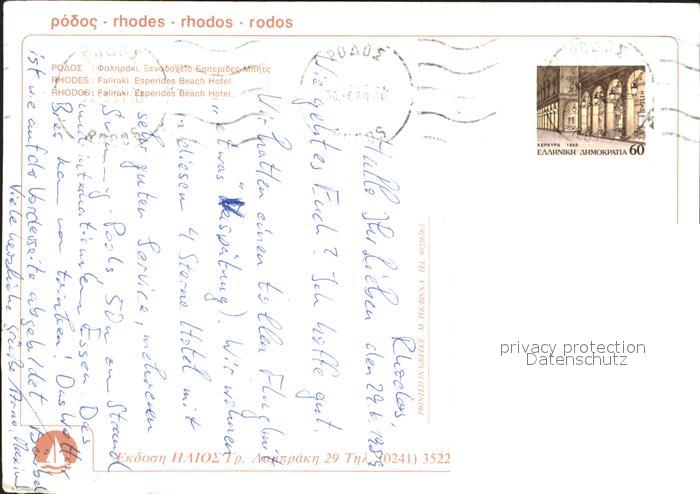 ρόδος · rhodes · rhodos · rodos
ΡΟΔΟΣ : Φαληράκι. Ξενοδοχείο Εσπερίδες Μπητς
RHODES : Faliraki. Esperides Beach Hotel.
RHODOS : Faliraki. Esperides Beach Hotel.
ΡΟΔΟΣ
ΡΟΔΟΣ
ΡΟΔΟΣ
ΚΕΡΚΥΡΑ 1988
ΕΛΛΗΝΙΚΗ ΔΗΜΟΚΡΑΤΙΑ 60
Rhodos,
den 29.6.1989
Hallo Ihr Lieben
Wie geht es Euch? Ich hoffe gut.
Wir hatten einen tollen Flug (mit
etwas Verspätung). Wir wohnen
in diesem 4 Sterne Hotel mit
sehr guten Service, mehreren
Swimming-Pools 50m am Strand
und internationalem Essen. Das
Bier kann man trinken! Das Wetter
ist wie auf der Vorderseite abgebildet.
Viele herzliche Grüße
PRINTED IN GREECE M. TOUBIS S.A. TEL.
Έκδοση ΗΛΙΟΣ Γρ. Λαμπράκη 29 Τηλ. (0241) 3522
privacy protection
Datenschutz